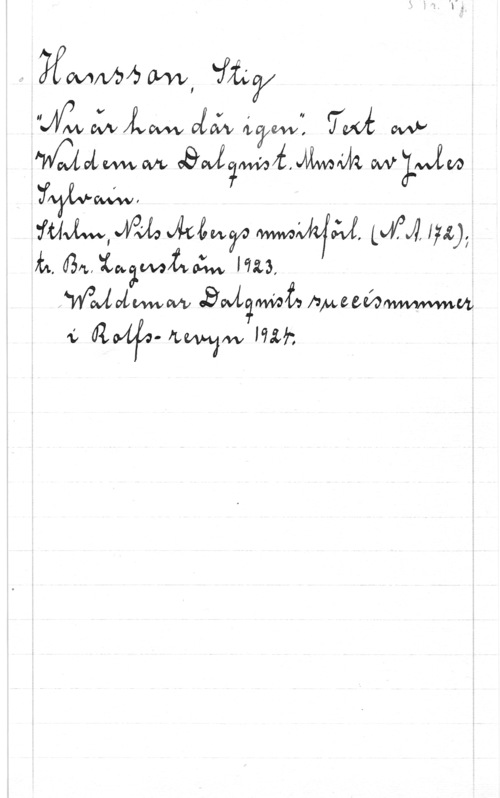 Hansson, Stig
"Nu är han där igen". Text av
Waldemar Dalqvist. Musik av Jules
Sylvain.
Sthlm, Nils Azbergs musikförl. (N.A. 172);
tr. Br. Lagerström 1923.
Waldemar Dalqvists succésnummer
i Rolfs-revyn 1924.